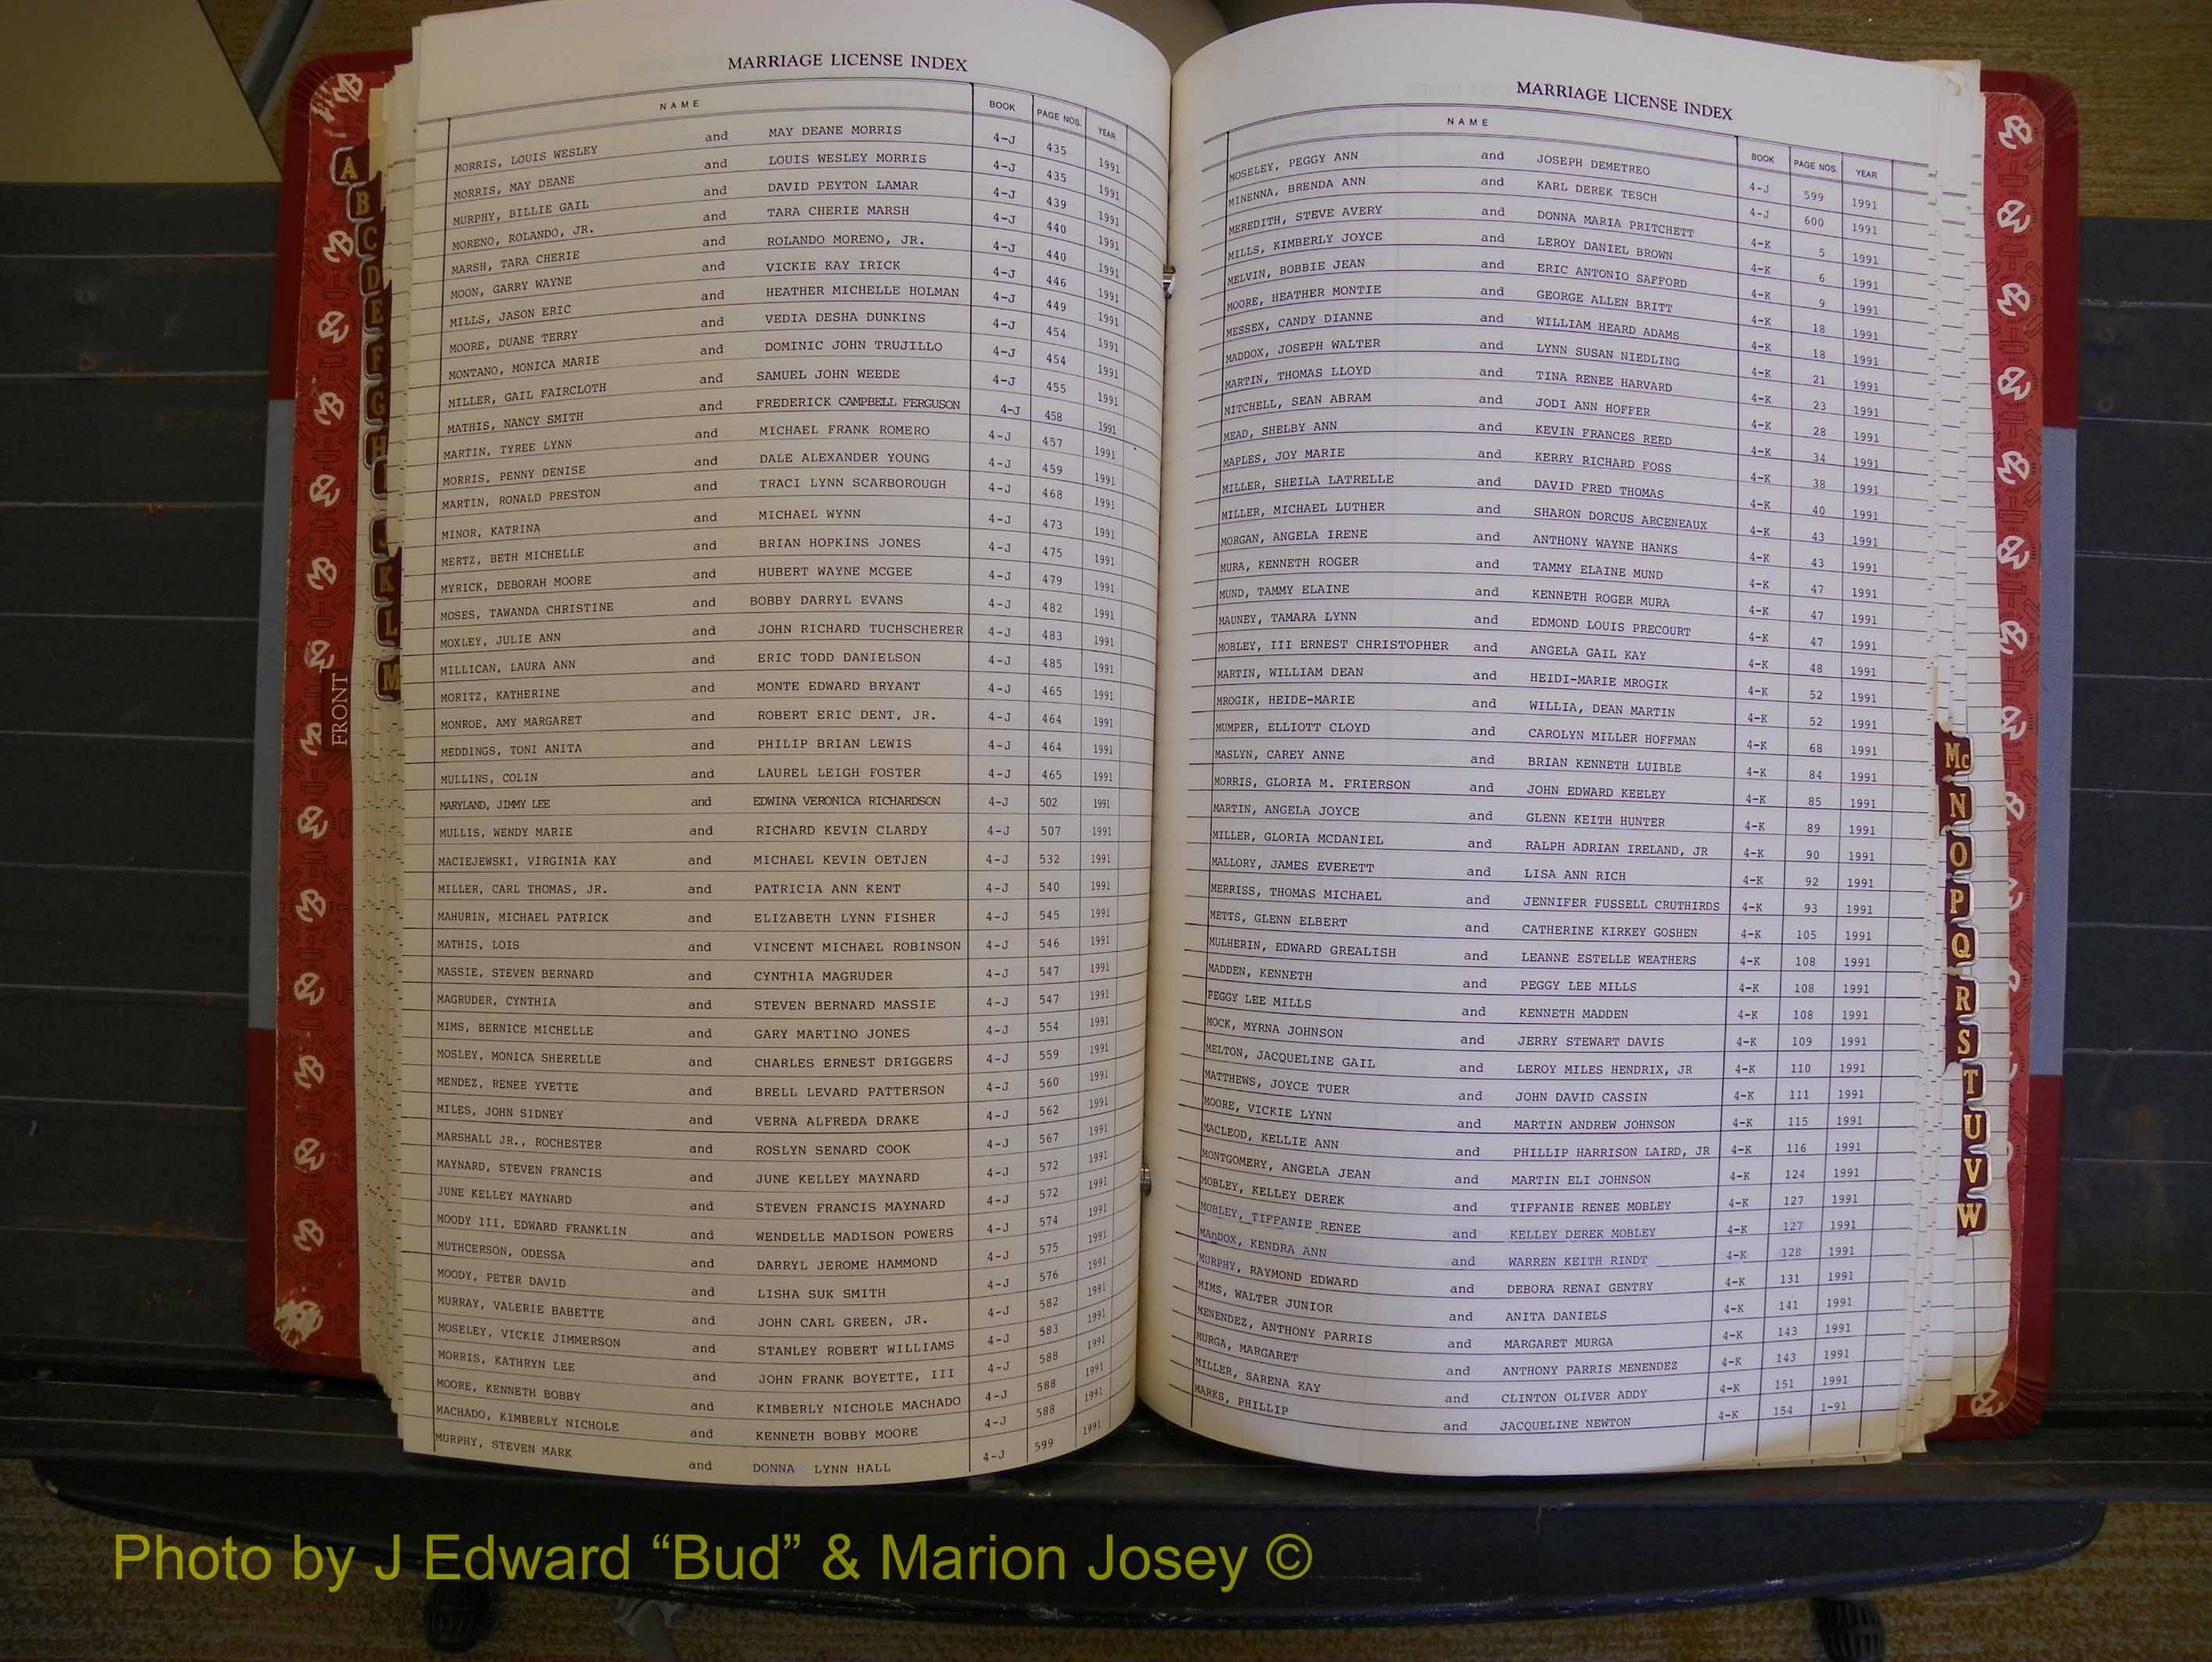 MARRIAGE LICENSE INDEX
NAME BOOK PAGE NOS. YEAR
MORRIS, LOUIS WESLEY and MAY DEANE MORRIS 4-J 435 1991
MORRIS, MAY DEANE and LOUIS WESLEY MORRIS 4-J 435 1991
MURPHY, BILLIE GAIL and DAVID PEYTON LAMAR 4-J 439 1991
MORENO, ROLANDO, JR. and TARA CHERIE MARSH 4-J 440 1991
MARSH, TARA CHERIE and ROLANDO MORENO, JR. 4-J 440 1991
MOON, GARRY WAYNE and VICKIE KAY IRICK 4-J 446 1991
MILLS, JASON ERIC and HEATHER MICHELLE HOLMAN 4-J 449 1991
MOORE, DUANE TERRY and VEDIA DESHA DUNKINS 4-J 454 1991
MONTANO, MONICA MARIE and DOMINIC JOHN TRUJILLO 4-J 454 1991
MILLER, GAIL FAIRCLOTH and SAMUEL JOHN WEEDE 4-J 455 1991
MATHIS, NANCY SMITH and FREDERICK CAMPBELL FERGUSON 4-J 458 1991
MARTIN, TYREE LYNN and MICHAEL FRANK ROMERO 4-J 457 1991
MORRIS, PENNY DENISE and DALE ALEXANDER YOUNG 4-J 459 1991
MARTIN, RONALD PRESTON and TRACI LYNN SCARBOROUGH 4-J 468 1991
MINOR, KATRINA and MICHAEL WYNN 4-J 473 1991
MERTZ, BETH MICHELLE and BRIAN HOPKINS JONES 4-J 475 1991
MYRICK, DEBORAH MOORE and HUBERT WAYNE MCGEE 4-J 479 1991
MOSES, TAWANDA CHRISTINE and BOBBY DARRYL EVANS 4-J 482 1991
MOXLEY, JULIE ANN and JOHN RICHARD TUCHSCHERER 4-J 483 1991
MILLICAN, LAURA ANN and ERIC TODD DANIELSON 4-J 485 1991
MORITZ, KATHERINE and MONTE EDWARD BRYANT 4-J 465 1991
MONROE, AMY MARGARET and ROBERT ERIC DENT, JR. 4-J 464 1991
MEDDINGS, TONI ANITA and PHILIP BRIAN LEWIS 4-J 464 1991
MULLINS, COLIN and LAUREL LEIGH FOSTER 4-J 465 1991
MARYLAND, JIMMY LEE and EDWINA VERONICA RICHARDSON 4-J 502 1991
MULLIS, WENDY MARIE and RICHARD KEVIN CLARDY 4-J 507 1991
MACIEJEWSKI, VIRGINIA KAY and MICHAEL KEVIN OETJEN 4-J 532 1991
MILLER, CARL THOMAS, JR. and PATRICIA ANN KENT 4-J 540 1991
MAHURIN, MICHAEL PATRICK and ELIZABETH LYNN FISHER 4-J 545 1991
MATHIS, LOIS and VINCENT MICHAEL ROBINSON 4-J 546 1991
MASSIE, STEVEN BERNARD and CYNTHIA MAGRUDER 4-J 547 1991
MAGRUDER, CYNTHIA and STEVEN BERNARD MASSIE 4-J 547 1991
MIMS, BERNICE MICHELLE and GARY MARTINO JONES 4-J 554 1991
MOSLEY, MONICA SHERELLE and CHARLES ERNEST DRIGGERS 4-J 559 1991
MENDEZ, RENEE YVETTE and BRELL LEVARD PATTERSON 4-J 560 1991
MILES, JOHN SIDNEY and VERNA ALFREDA DRAKE 4-J 562 1991
MARSHALL JR., ROCHESTER and ROSLYN SENARD COOK 4-J 567 1991
MAYNARD, STEVEN FRANCIS and JUNE KELLEY MAYNARD 4-J 572 1991
JUNE KELLEY MAYNARD and STEVEN FRANCIS MAYNARD 4-J 572 1991
MOODY III, EDWARD FRANKLIN and WENDELLE MADISON POWERS 4-J 574 1991
MUTHCERSON, ODESSA and DARRYL JEROME HAMMOND 4-J 575 1991
MOODY, PETER DAVID and LISHA SUK SMITH 4-J 576 1991
MURRAY, VALERIE BABETTE and JOHN CARL GREEN, JR. 4-J 582 1991
MOSELEY, VICKIE JIMMERSON and STANLEY ROBERT WILLIAMS 4-J 583 1991
MORRIS, KATHRYN LEE and JOHN FRANK BOYETTE, III 4-J 588 1991
MOORE, KENNETH BOBBY and KIMBERLY NICHOLE MACHADO 4-J 588 1991
MACHADO, KIMBERLY NICHOLE and KENNETH BOBBY MOORE 4-J 588 1991
MURPHY, STEVEN MARK and DONNA LYNN HALL 4-J 599 1991
MARRIAGE LICENSE INDEX
NAME BOOK PAGE NOS. YEAR
MOSELEY, PEGGY ANN and JOSEPH DEMETREO 4-J 599 1991
MINENNA, BRENDA ANN and KARL DEREK TESCH 4-J 600 1991
MEREDITH, STEVE AVERY and DONNA MARIA PRITCHETT 4-K 5 1991
MILLS, KIMBERLY JOYCE and LEROY DANIEL BROWN 4-K 6 1991
MELVIN, BOBBIE JEAN and ERIC ANTONIO SAFFORD 4-K 9 1991
MOORE, HEATHER MONTIE and GEORGE ALLEN BRITT 4-K 18 1991
MESSEX, CANDY DIANNE and WILLIAM HEARD ADAMS 4-K 18 1991
MADDOX, JOSEPH WALTER and LYNN SUSAN NIEDLING 4-K 21 1991
MARTIN, THOMAS LLOYD and TINA RENEE HARVARD 4-K 23 1991
MITCHELL, SEAN ABRAM and JODI ANN HOFFER 4-K 28 1991
MEAD, SHELBY ANN and KEVIN FRANCES REED 4-K 34 1991
MAPLES, JOY MARIE and KERRY RICHARD FOSS 4-K 38 1991
MILLER, SHEILA LATRELLE and DAVID FRED THOMAS 4-K 40 1991
MILLER, MICHAEL LUTHER and SHARON DORCUS ARCENEAUX 4-K 43 1991
MORGAN, ANGELA IRENE and ANTHONY WAYNE HANKS 4-K 43 1991
MURA, KENNETH ROGER and TAMMY ELAINE MUND 4-K 47 1991
MUND, TAMMY ELAINE and KENNETH ROGER MURA 4-K 47 1991
MAUNEY, TAMARA LYNN and EDMOND LOUIS PRECOURT 4-K 47 1991
MOBLEY, III ERNEST CHRISTOPHER and ANGELA GAIL KAY 4-K 48 1991
MARTIN, WILLIAM DEAN and HEIDI-MARIE MROGIK 4-K 52 1991
MROGIK, HEIDE-MARIE and WILLIA, DEAN MARTIN 4-K 52 1991
MUMPER, ELLIOTT CLOYD and CAROLYN MILLER HOFFMAN 4-K 68 1991
MASLYN, CAREY ANNE and BRIAN KENNETH LUIBLE 4-K 84 1991
MORRIS, GLORIA M. FRIERSON and JOHN EDWARD KEELEY 4-K 85 1991
MARTIN, ANGELA JOYCE and GLENN KEITH HUNTER 4-K 89 1991
MILLER, GLORIA MCDANIEL and RALPH ADRIAN IRELAND, JR 4-K 90 1991
MALLORY, JAMES EVERETT and LISA ANN RICH 4-K 92 1991
MERRISS, THOMAS MICHAEL and JENNIFER FUSSELL CRUTHIRDS 4-K 93 1991
METTS, GLENN ELBERT and CATHERINE KIRKEY GOSHEN 4-K 105 1991
MULHERIN, EDWARD GREALISH and LEANNE ESTELLE WEATHERS 4-K 108 1991
MADDEN, KENNETH and PEGGY LEE MILLS 4-K 108 1991
PEGGY LEE MILLS and KENNETH MADDEN 4-K 108 1991
MOCK, MYRNA JOHNSON and JERRY STEWART DAVIS 4-K 109 1991
MELTON, JACQUELINE GAIL and LEROY MILES HENDRIX, JR 4-K 110 1991
MATTHEWS, JOYCE TUER and JOHN DAVID CASSIN 4-K 111 1991
MOORE, VICKIE LYNN and MARTIN ANDREW JOHNSON 4-K 115 1991
MACLEOD, KELLIE ANN and PHILLIP HARRISON LAIRD, JR 4-K 116 1991
MONTGOMERY, ANGELA JEAN and MARTIN ELI JOHNSON 4-K 124 1991
MOBLEY, KELLEY DEREK and TIFFANIE RENEE MOBLEY 4-K 127 1991
MOBLEY, TIFFANIE RENEE and KELLEY DEREK MOBLEY 4-K 127 1991
MADDOX, KENDRA ANN and WARREN KEITH RINDT 4-K 128 1991
MURPHY, RAYMOND EDWARD and DEBORA RENAI GENTRY 4-K 131 1991
MIMS, WALTER JUNIOR and ANITA DANIELS 4-K 141 1991
MENENDEZ, ANTHONY PARRIS and MARGARET MURGA 4-K 143 1991
MURGA, MARGARET and ANTHONY PARRIS MENENDEZ 4-K 143 1991
MILLER, SARENA KAY and CLINTON OLIVER ADDY 4-K 151 1991
MARKS, PHILLIP and JACQUELINE NEWTON 4-K 154 1-91
A
B
C
D
E
F
G
H
J
K
L
M
FRONT
Mc
N
O
P
Q
R
S
T
U
V
W
Photo by J Edward “Bud” & Marion Josey ©